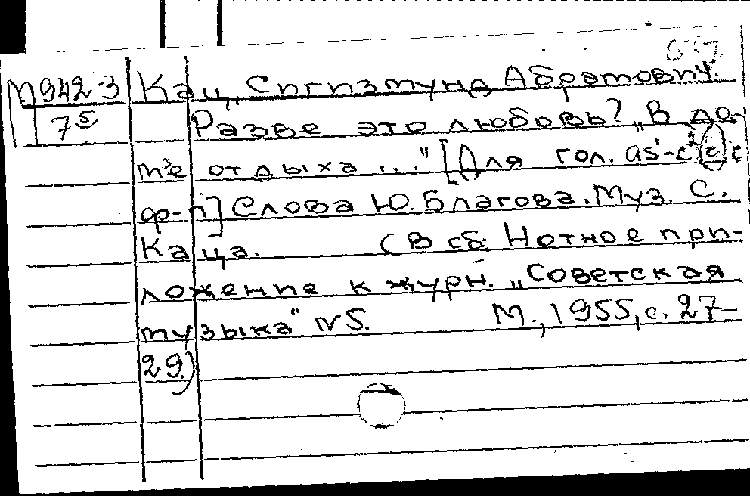 М942-3 Кац, Сигизмунд Абрамович.
7⁵ Разве это любовь? „В до-
ме отдыха ..." [Для гол. as¹-c² с
ф-п] Слова Ю. Благова. Муз. С.
Каца. (В сб. Нотное при-
ложение к журн. „Советская
музыка" N5. М., 1955, с. 27-
29.)